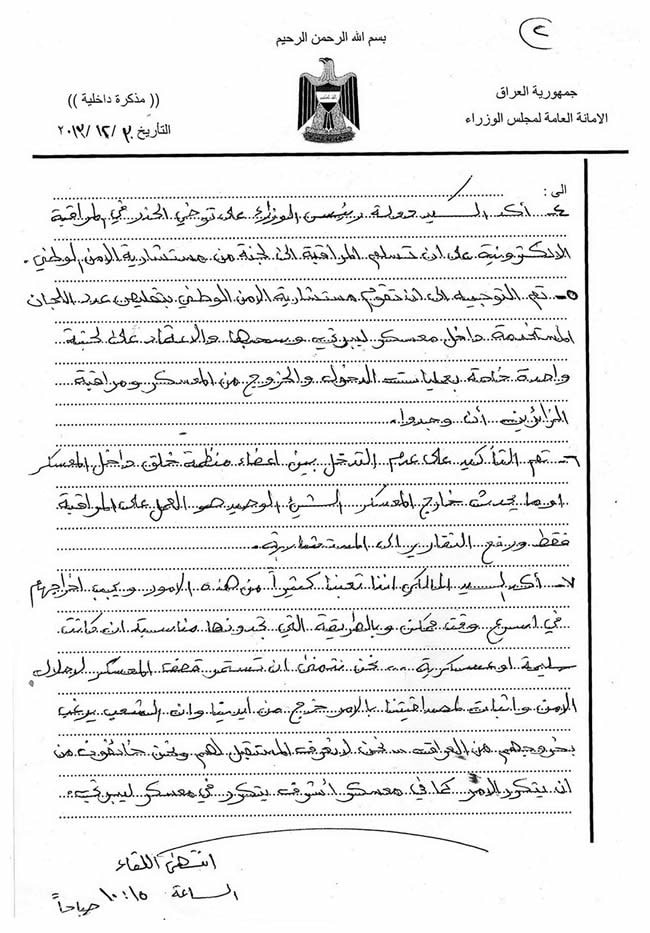 ٢
بسم الله الرحمن الرحيم
جمهورية العراق
الامانة العامة لمجلس الوزراء
(( مذكرة داخلية ))
التأريخ ٣٠/١٢/٢٠١٣
الى :
٤- أكد السيد دولة رئيس الوزراء على توخي الحذر في المراقبة
الالكترونية على ان تسلم المراقبة الى لجنة من مستشارية الامن الوطني .
٥- تم التوجيه الى ان تقوم مستشارية الامن الوطني بتقليص عدد اللجان
المستخدمة داخل معسكر ليبرتي وسحبها والاعتماد على لجنة
واحدة خاصة بعمليات الدخول والخروج من المعسكر ومراقبة
الزائرين أن وجدوا.
٦- تم التأكيد على عدم التدخل بين اعضاء منظمة خلق داخل المعسكر
او ما يحدث خارج المعسكر الشيئ الوحيد هو العمل على المراقبة
فقط ورفع التقارير الى المستشارية .
٧- أكد السيد المالكي اننا تعبنا كثيراً من هذه الامور ويجب اخراجهم
في اسرع وقت ممكن وبالطريقة التي تجدونها مناسبة ان كانت
سلمية او عسكرية .. نحن نتمنى ان تستمر قصف المعسكر
الامن واثبات لمصداقيتنا بالامر خرج من ايدينا وان الشعب يرغب
بخروجهم من العراق .. نحن لا نعرف المستقبل لهم ونحن خائفون من
ان يتكرر الامر كما في معسكر أشرف يتكرر في معسكر ليبرتي .
انتهى اللقاء
الساعة ١٠:١٥ صباحاً